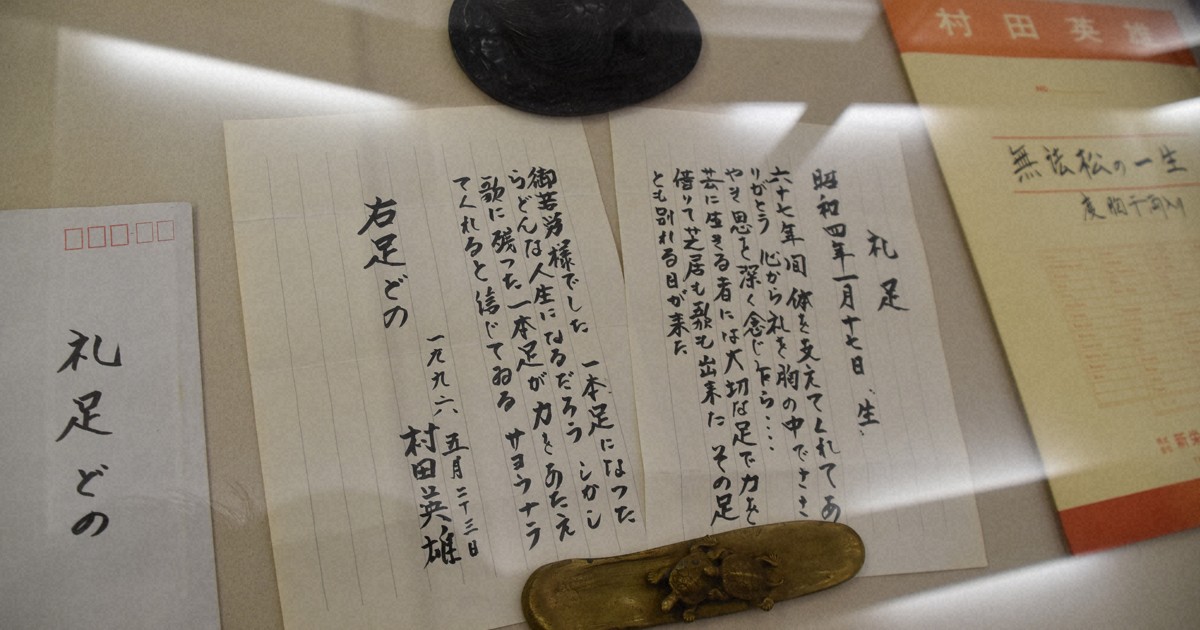 村田英雄
無法松の一生
度胸千両入り
礼足
昭和四年一月十七日、生、
六十七年間体を支えてくれてあ
りがとう 心から礼を胸の中でささ
やき思を深く念じ乍ら・・・・
芸に生きる者には大切な足で力を
借りて芝居も歌も出来た その足
とも別れる日が来た
御苦労様でした 一本足になった
らどんな人生になるだろう しかし
歌に残った一本足が力をあたえ
てくれると信じてゐる サヨウナラ
一九九六 五月二十三日
村田英雄
右足どの
礼足どの